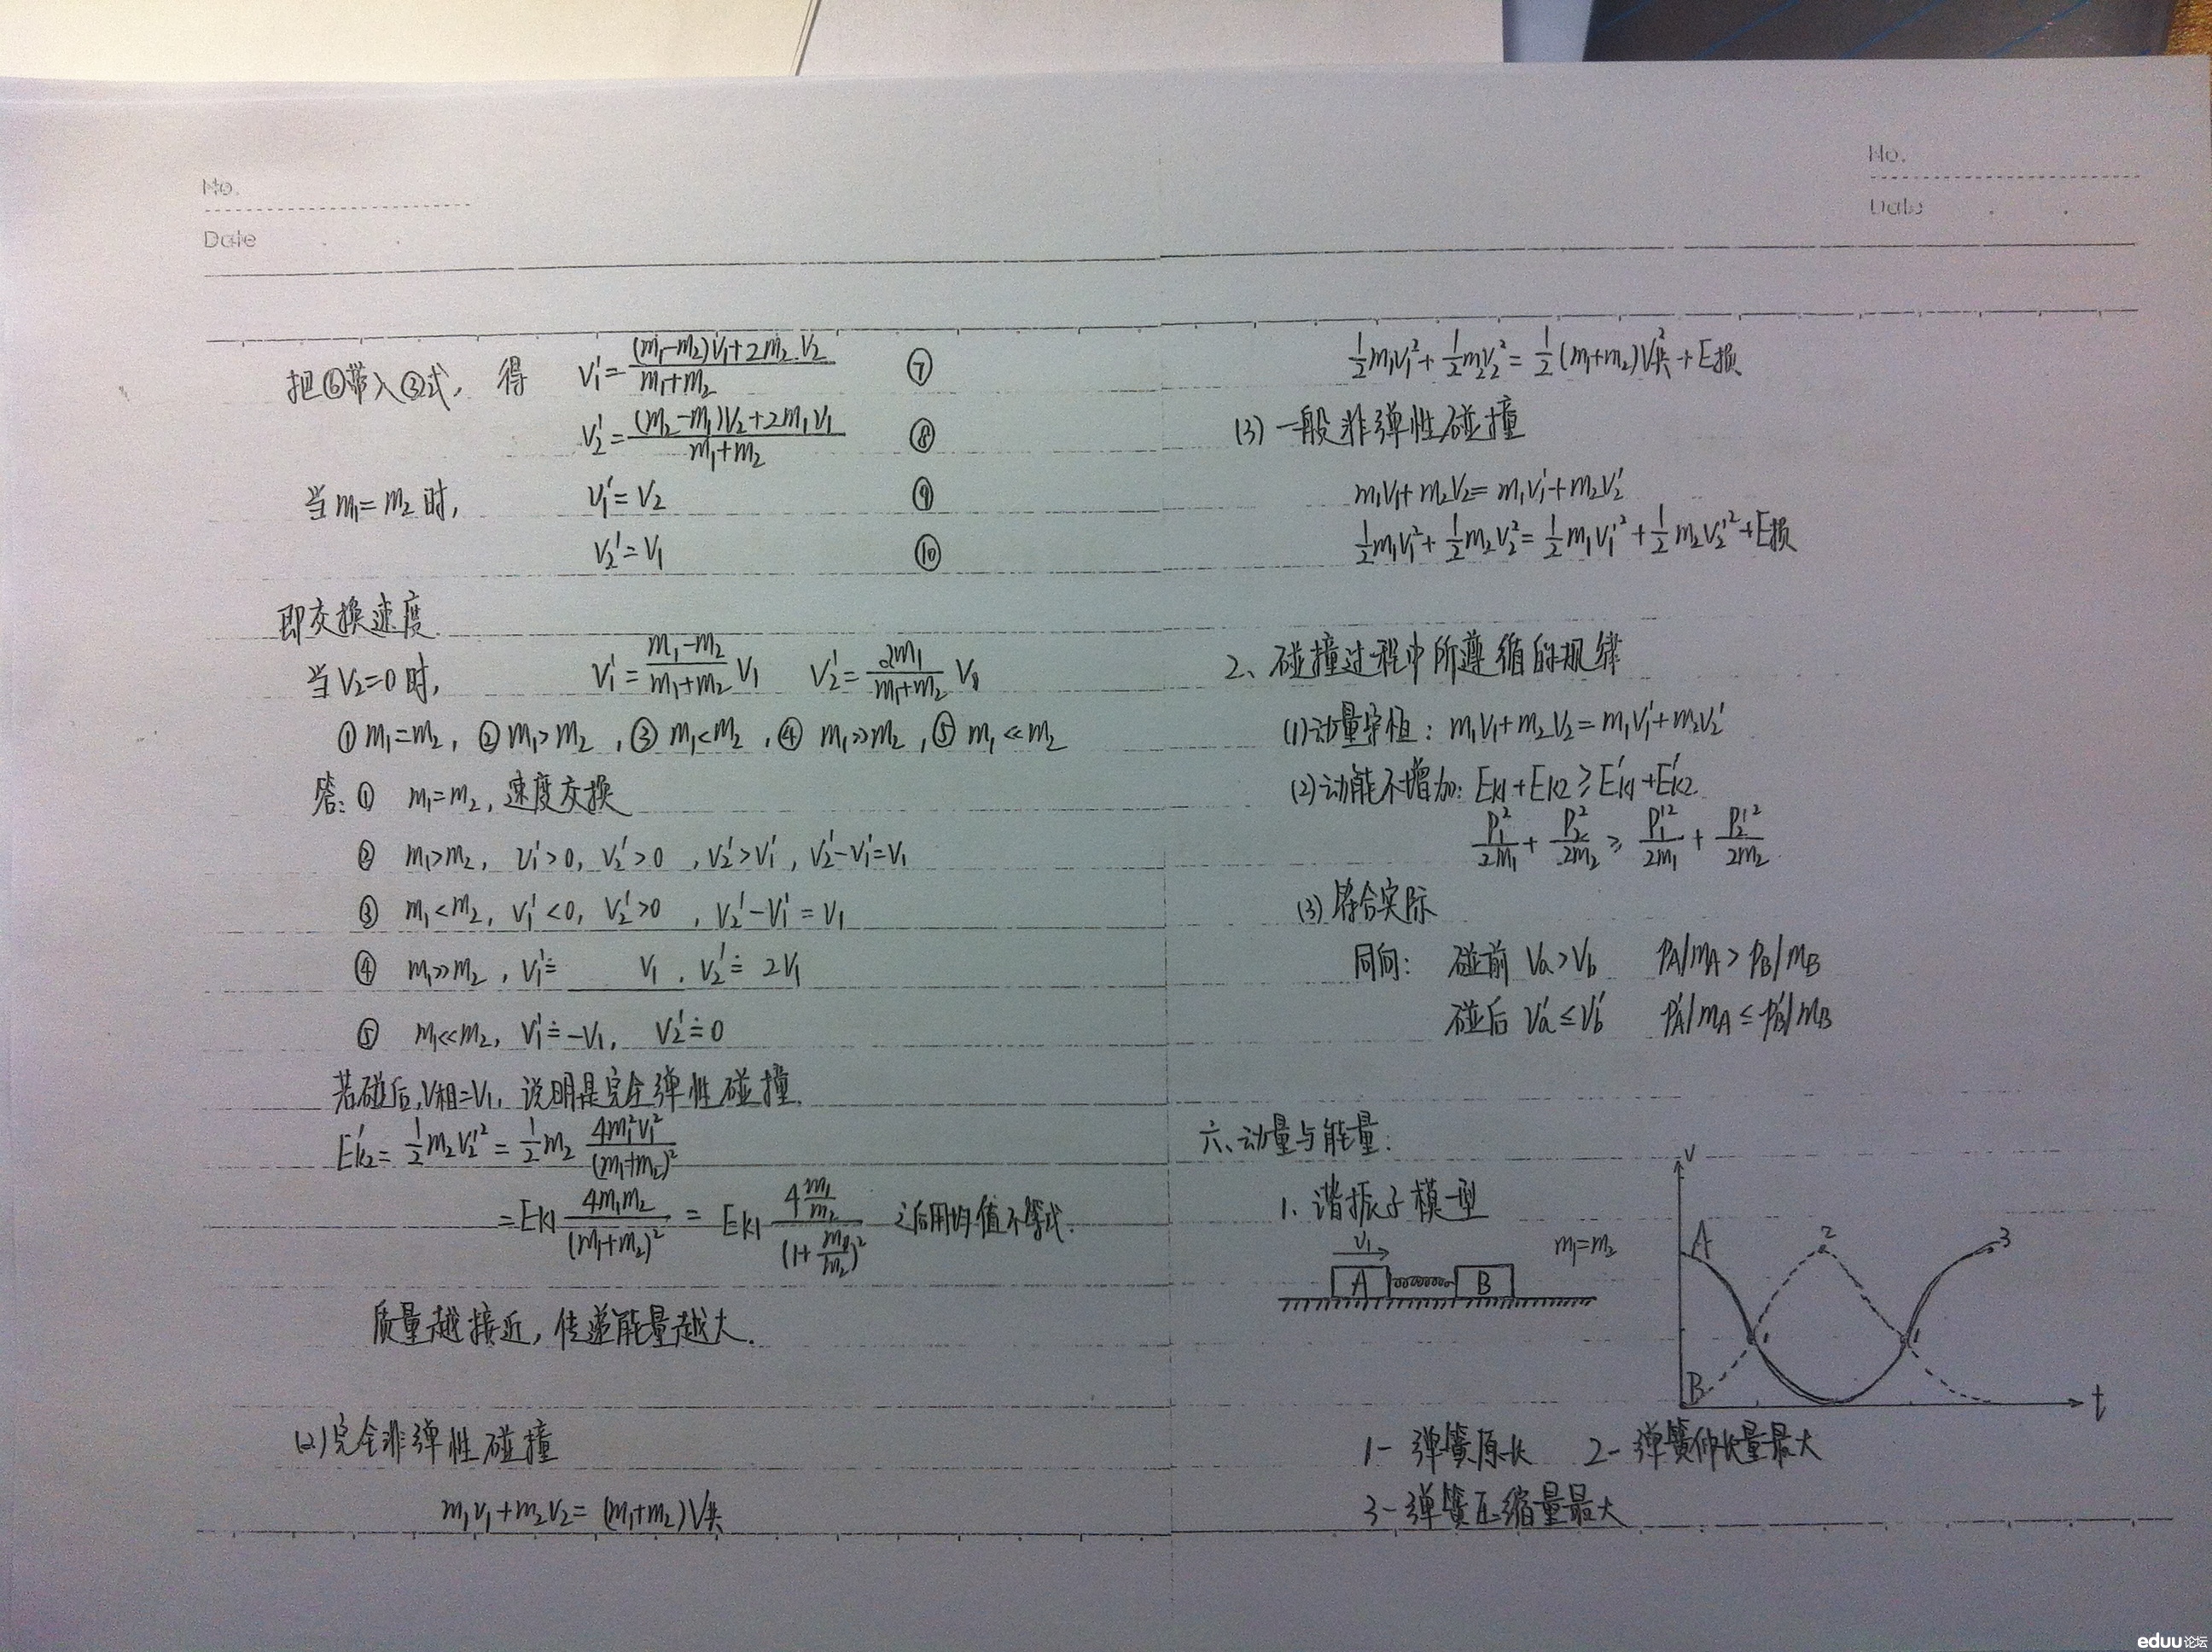 No.
Date
把⑥带入③式, 得 V₁'=((m₁-m₂)V₁+2m₂V₂)/(m₁+m₂) ⑦
V₂'=((m₂-m₁)V₂+2m₁V₁)/(m₁+m₂) ⑧
当m₁=m₂时, V₁'=V₂ ⑨
V₂'=V₁ ⑩
即交换速度.
当V₂=0时, V₁'=(m₁-m₂)/(m₁+m₂) V₁ V₂'=2m₁/(m₁+m₂) V₁
① m₁=m₂, ② m₁>m₂, ③ m₁<m₂, ④ m₁≫m₂, ⑤ m₁≪m₂
答: ① m₁=m₂, 速度交换
② m₁>m₂, V₁'>0, V₂'>0, V₂'>V₁', V₂'-V₁'=V₁
③ m₁<m₂, V₁'<0, V₂'>0, V₂'-V₁'=V₁
④ m₁≫m₂, V₁'≐ V₁, V₂'≐2V₁
⑤ m₁≪m₂, V₁'≐-V₁, V₂'≐0
若碰后,V相=V₁, 说明是完全弹性碰撞.
Ek₂'=½m₂V₂'²=½m₂ 4m₁²V₁²/(m₁+m₂)²
=Ek1 4m₁m₂/(m₁+m₂)² = Ek1 4(m₁/m₂)/(1+m₁/m₂)² 之后用均值不等式.
质量越接近, 传递能量越大.
(2)完全非弹性碰撞
m₁v₁+m₂v₂=(m₁+m₂)V共
No.
Date
½m₁V₁²+½m₂V₂²=½(m₁+m₂)V共²+E损
(3)一般非弹性碰撞
m₁V₁+m₂V₂=m₁V₁'+m₂V₂'
½m₁V₁²+½m₂V₂²=½m₁V₁'²+½m₂V₂'²+E损
2、碰撞过程中所遵循的规律
(1)动量守恒: m₁V₁+m₂V₂=m₁V₁'+m₂V₂'
(2)动能不增加: Ek1+Ek2≥Ek1'+Ek2'.
P₁²/2m₁+P₂²/2m₂≥P₁'²/2m₁+P₂'²/2m₂
(3)符合实际
同向: 碰前 Va>Vb PA/mA>PB/mB
碰后 Va'≤Vb' PA'/mA≤PB'/mB
六、动量与能量:
1、谐振子模型
V₁ m₁=m₂
A B
V
A 2 3
1 1
B t
1- 弹簧原长 2- 弹簧伸长量最大
3-弹簧压缩量最大
eduu论坛